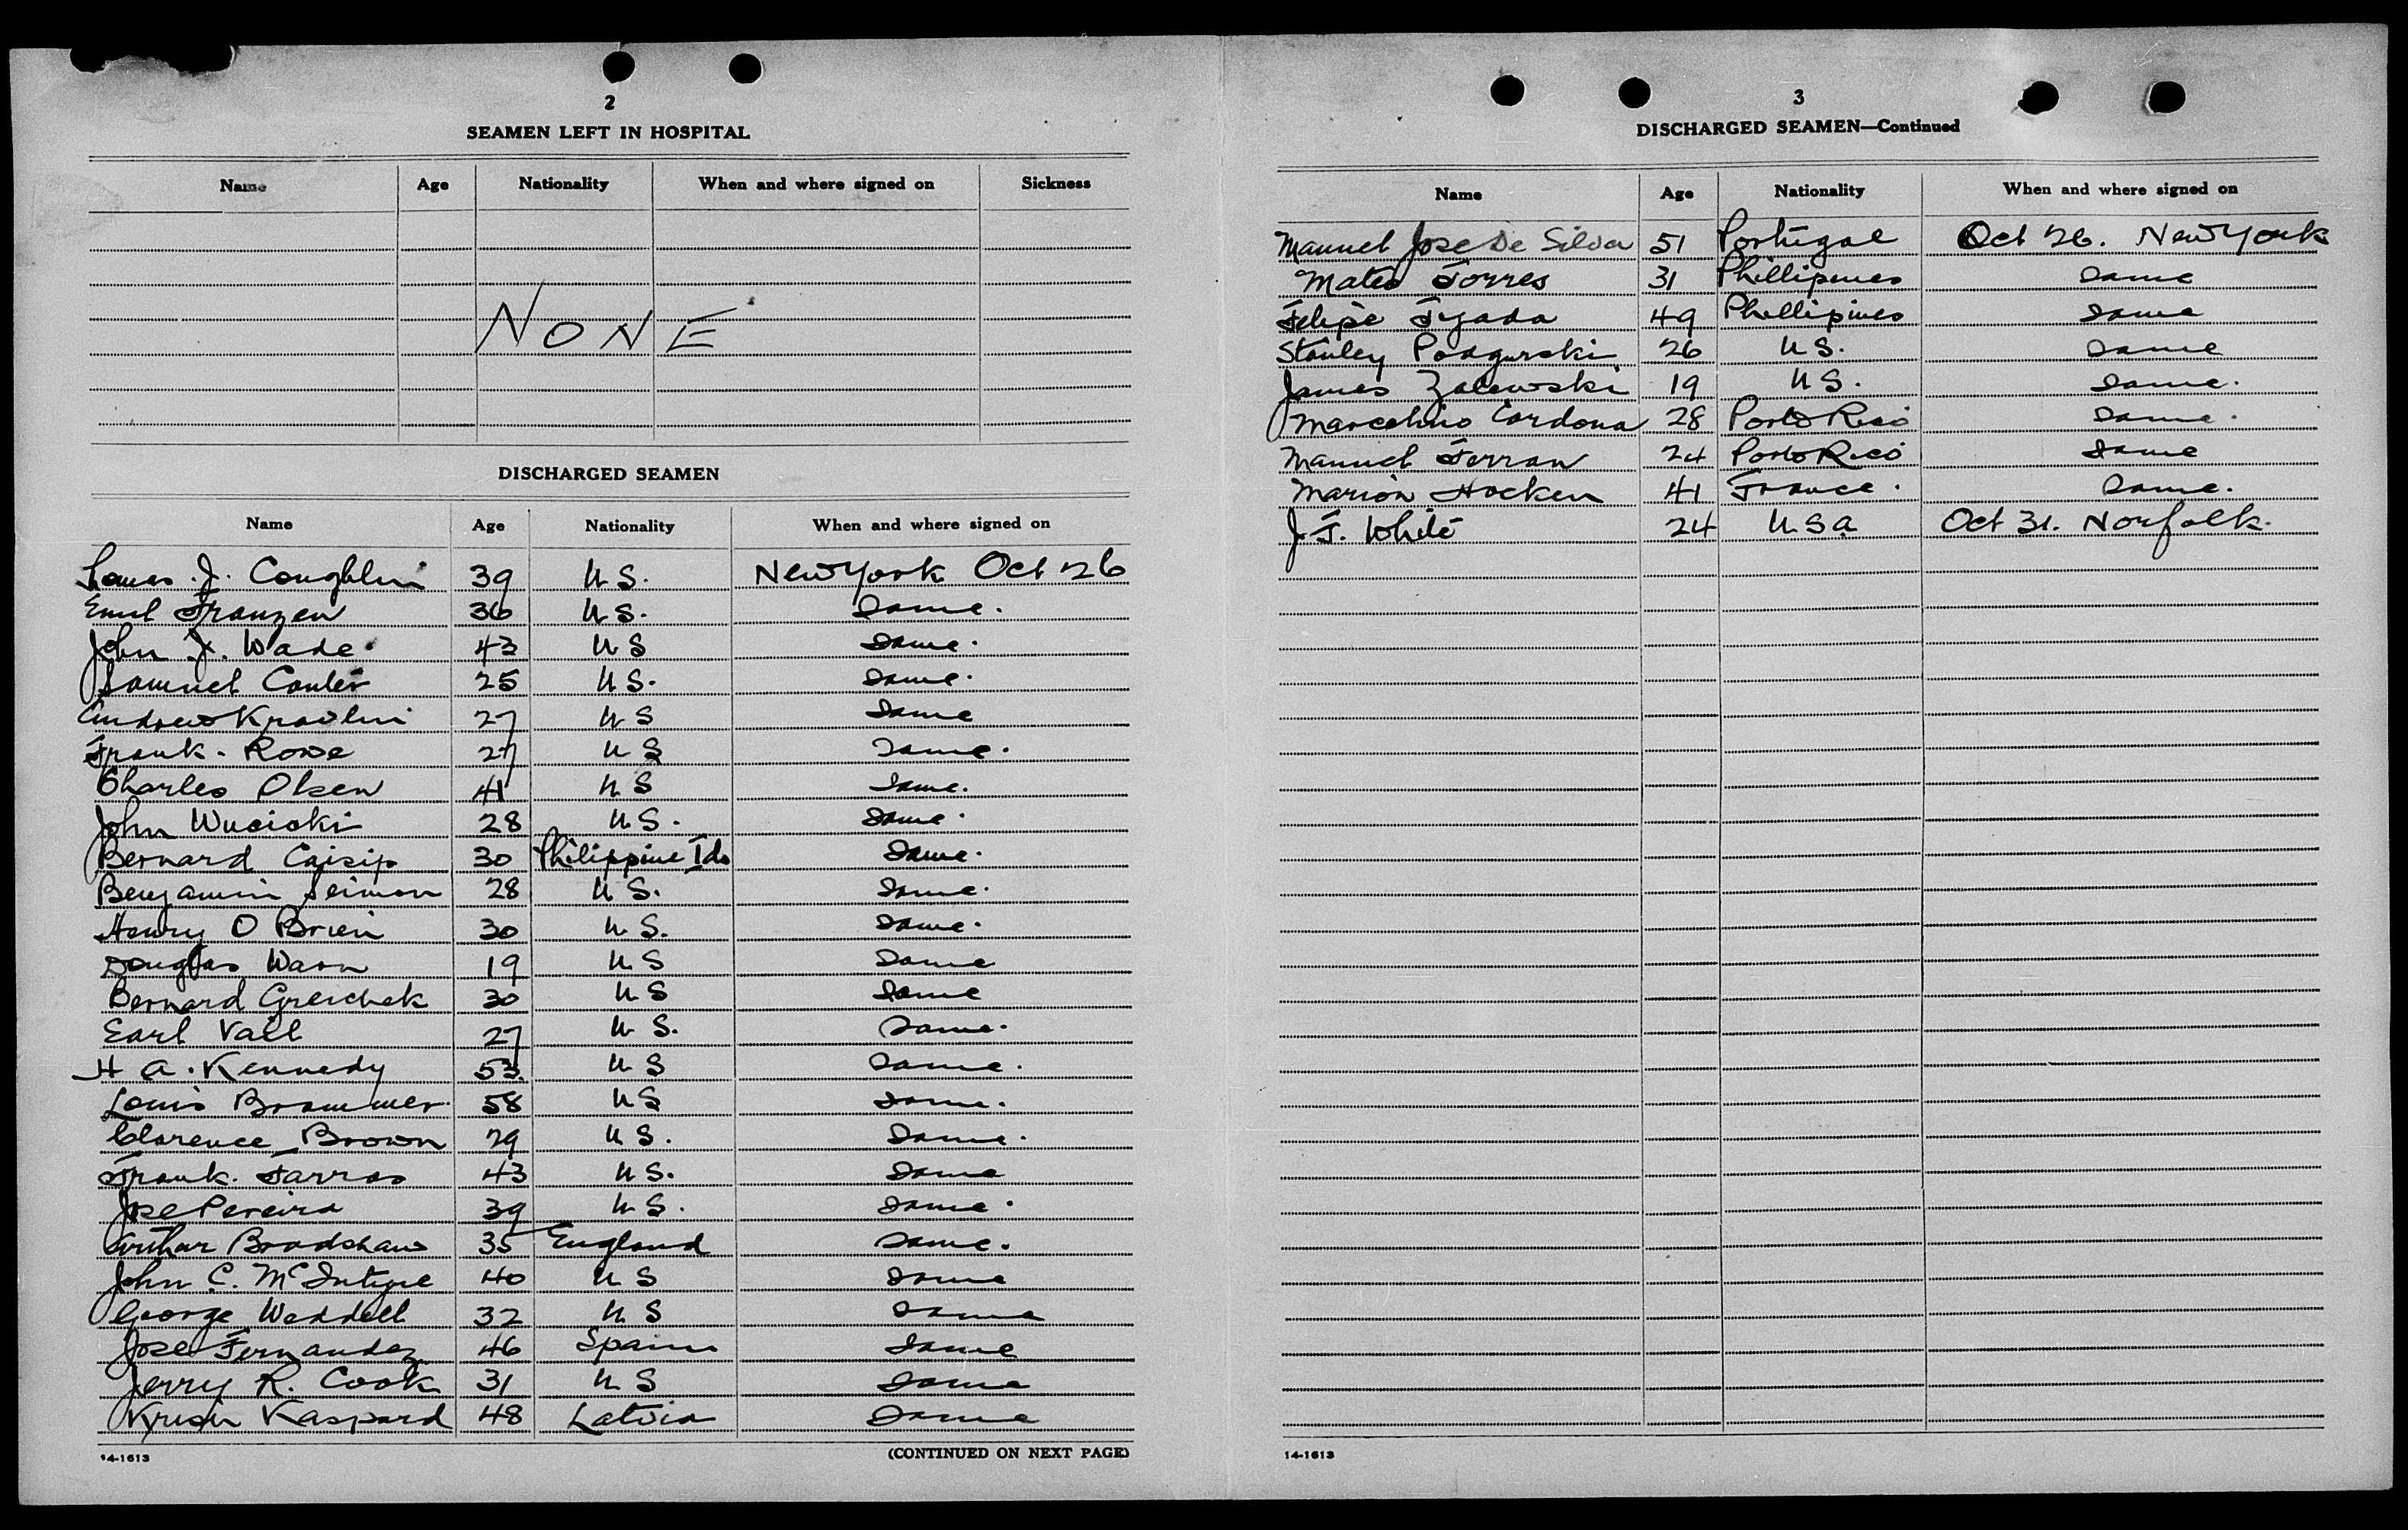 2
SEAMEN LEFT IN HOSPITAL
Name Age Nationality When and where signed on Sickness
NONE
DISCHARGED SEAMEN
Name Age Nationality When and where signed on
J. Coughlin 39 U S. New York Oct 26
Emil Franzen 36 U S. Same.
John J. Wade 43 U S Same.
Samuel 25 U S. Same.
Andrew 27 U S Same
Frank. Rowe 27 U S Same.
Charles Olsen 41 U S Same.
John 28 U S. Same.
Bernard 30 Philippine Ids Same.
Benjamin 28 U S. Same.
Henry O Brien 30 U S. Same.
Douglas 19 U S Same
Bernard 30 U S Same
Earl Vail 27 U S. Same.
H A. Kennedy 53. U S Same.
Louis Brammer 58 U S Same.
Clarence Brown 29 U S. Same.
Frank. Farras 43 U S. Same
Jose Pereira 39 U S. Same.
Arthur Bradshaw 35 England Same.
John C. McIntyre 40 U S Same
George Weddell 32 U S Same
Jose Fernandez 46 Spain Same
Jerry R. Cook 31 U S Same
Kaspard 48 Latvia Same
14-1613 (CONTINUED ON NEXT PAGE)
3
DISCHARGED SEAMEN—Continued
Name Age Nationality When and where signed on
Manuel Jose De Silva 51 Portugal Oct 26. New York
Mateo Torres 31 Phillipines Same
Felipe 49 Phillipines Same
Stanley Podgurski 26 U S. Same
James Zalewski 19 U S. Same.
Marcelino Cardona 28 Porto Rico Same.
Manuel 24 Porto Rico Same
Marion Hocken 41 France. Same.
J. F. White 24 U S a Oct 31. Norfolk.
14-1613